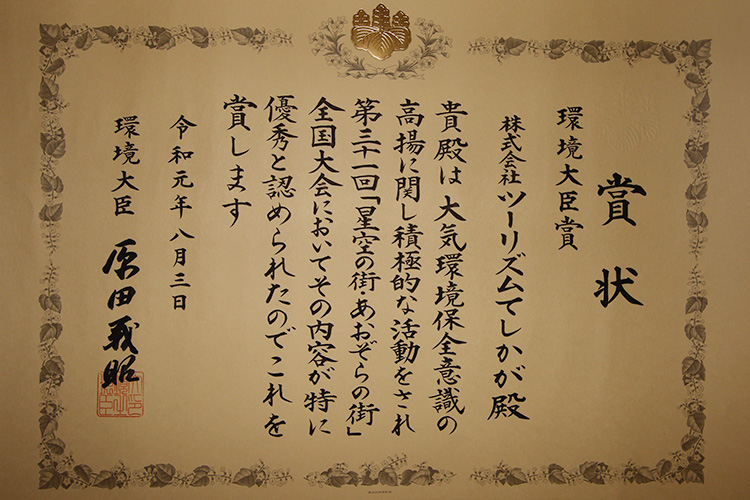 賞状
環境大臣賞
株式会社 ツーリズムてしかが殿
貴殿は大気環境保全意識の
高揚に関し積極的な活動をされ
第三十一回「星空の街・あおぞらの街」
全国大会においてその内容が特に
優秀と認められたのでこれを
賞します
令和元年八月三日
環境大臣 原田義昭